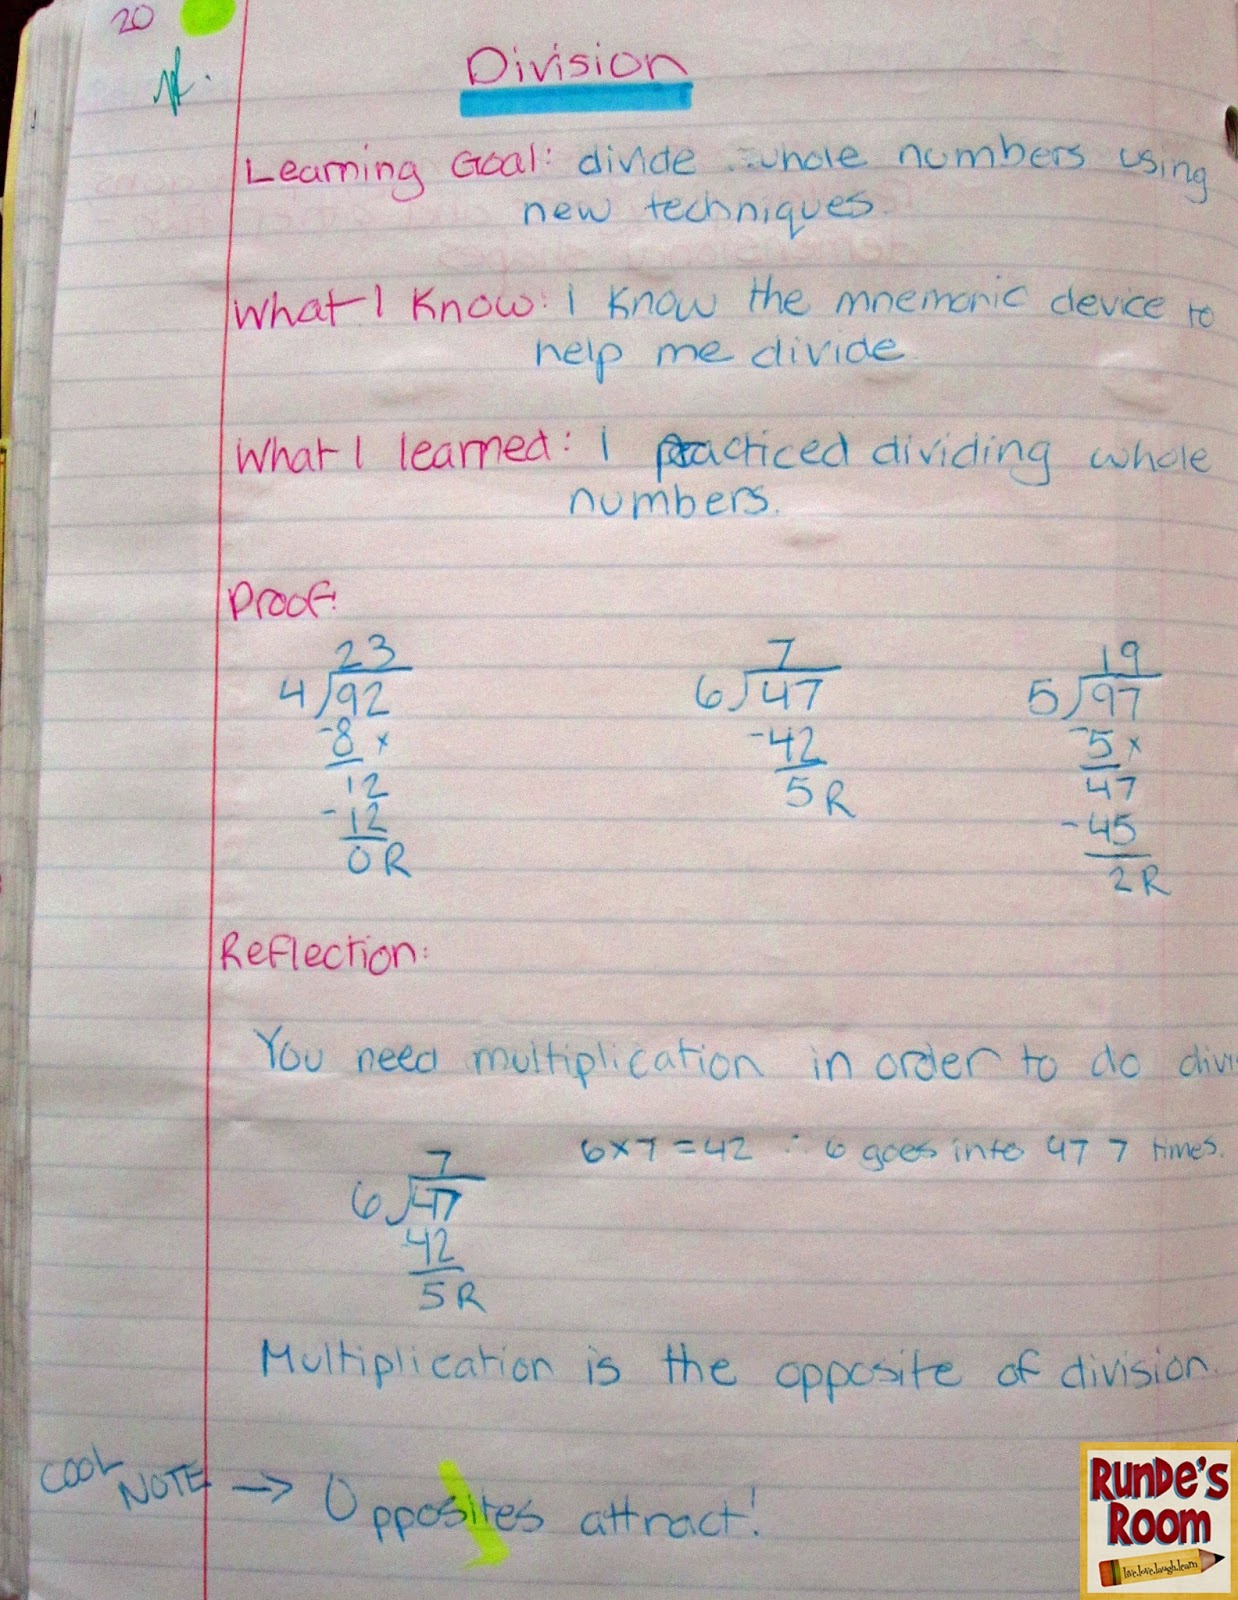 20
Division
Learning Goal: divide whole numbers using
new techniques.
What I know: I know the mnemonic device to
help me divide.
What I learned: I practiced dividing whole
numbers.
Proof:
23 7 19
4)92 6)47 5)97
-8 x -42 -5 x
12 5 R 47
-12 -45
0 R 2 R
Reflection:
You need multiplication in order to do divi
7 6x7=42 ∴ 6 goes into 47 7 times.
6)47
42
5 R
Multiplication is the opposite of division.
COOL
NOTE → Opposites attract!
RUNDE'S
ROOM
live.love.laugh.learn